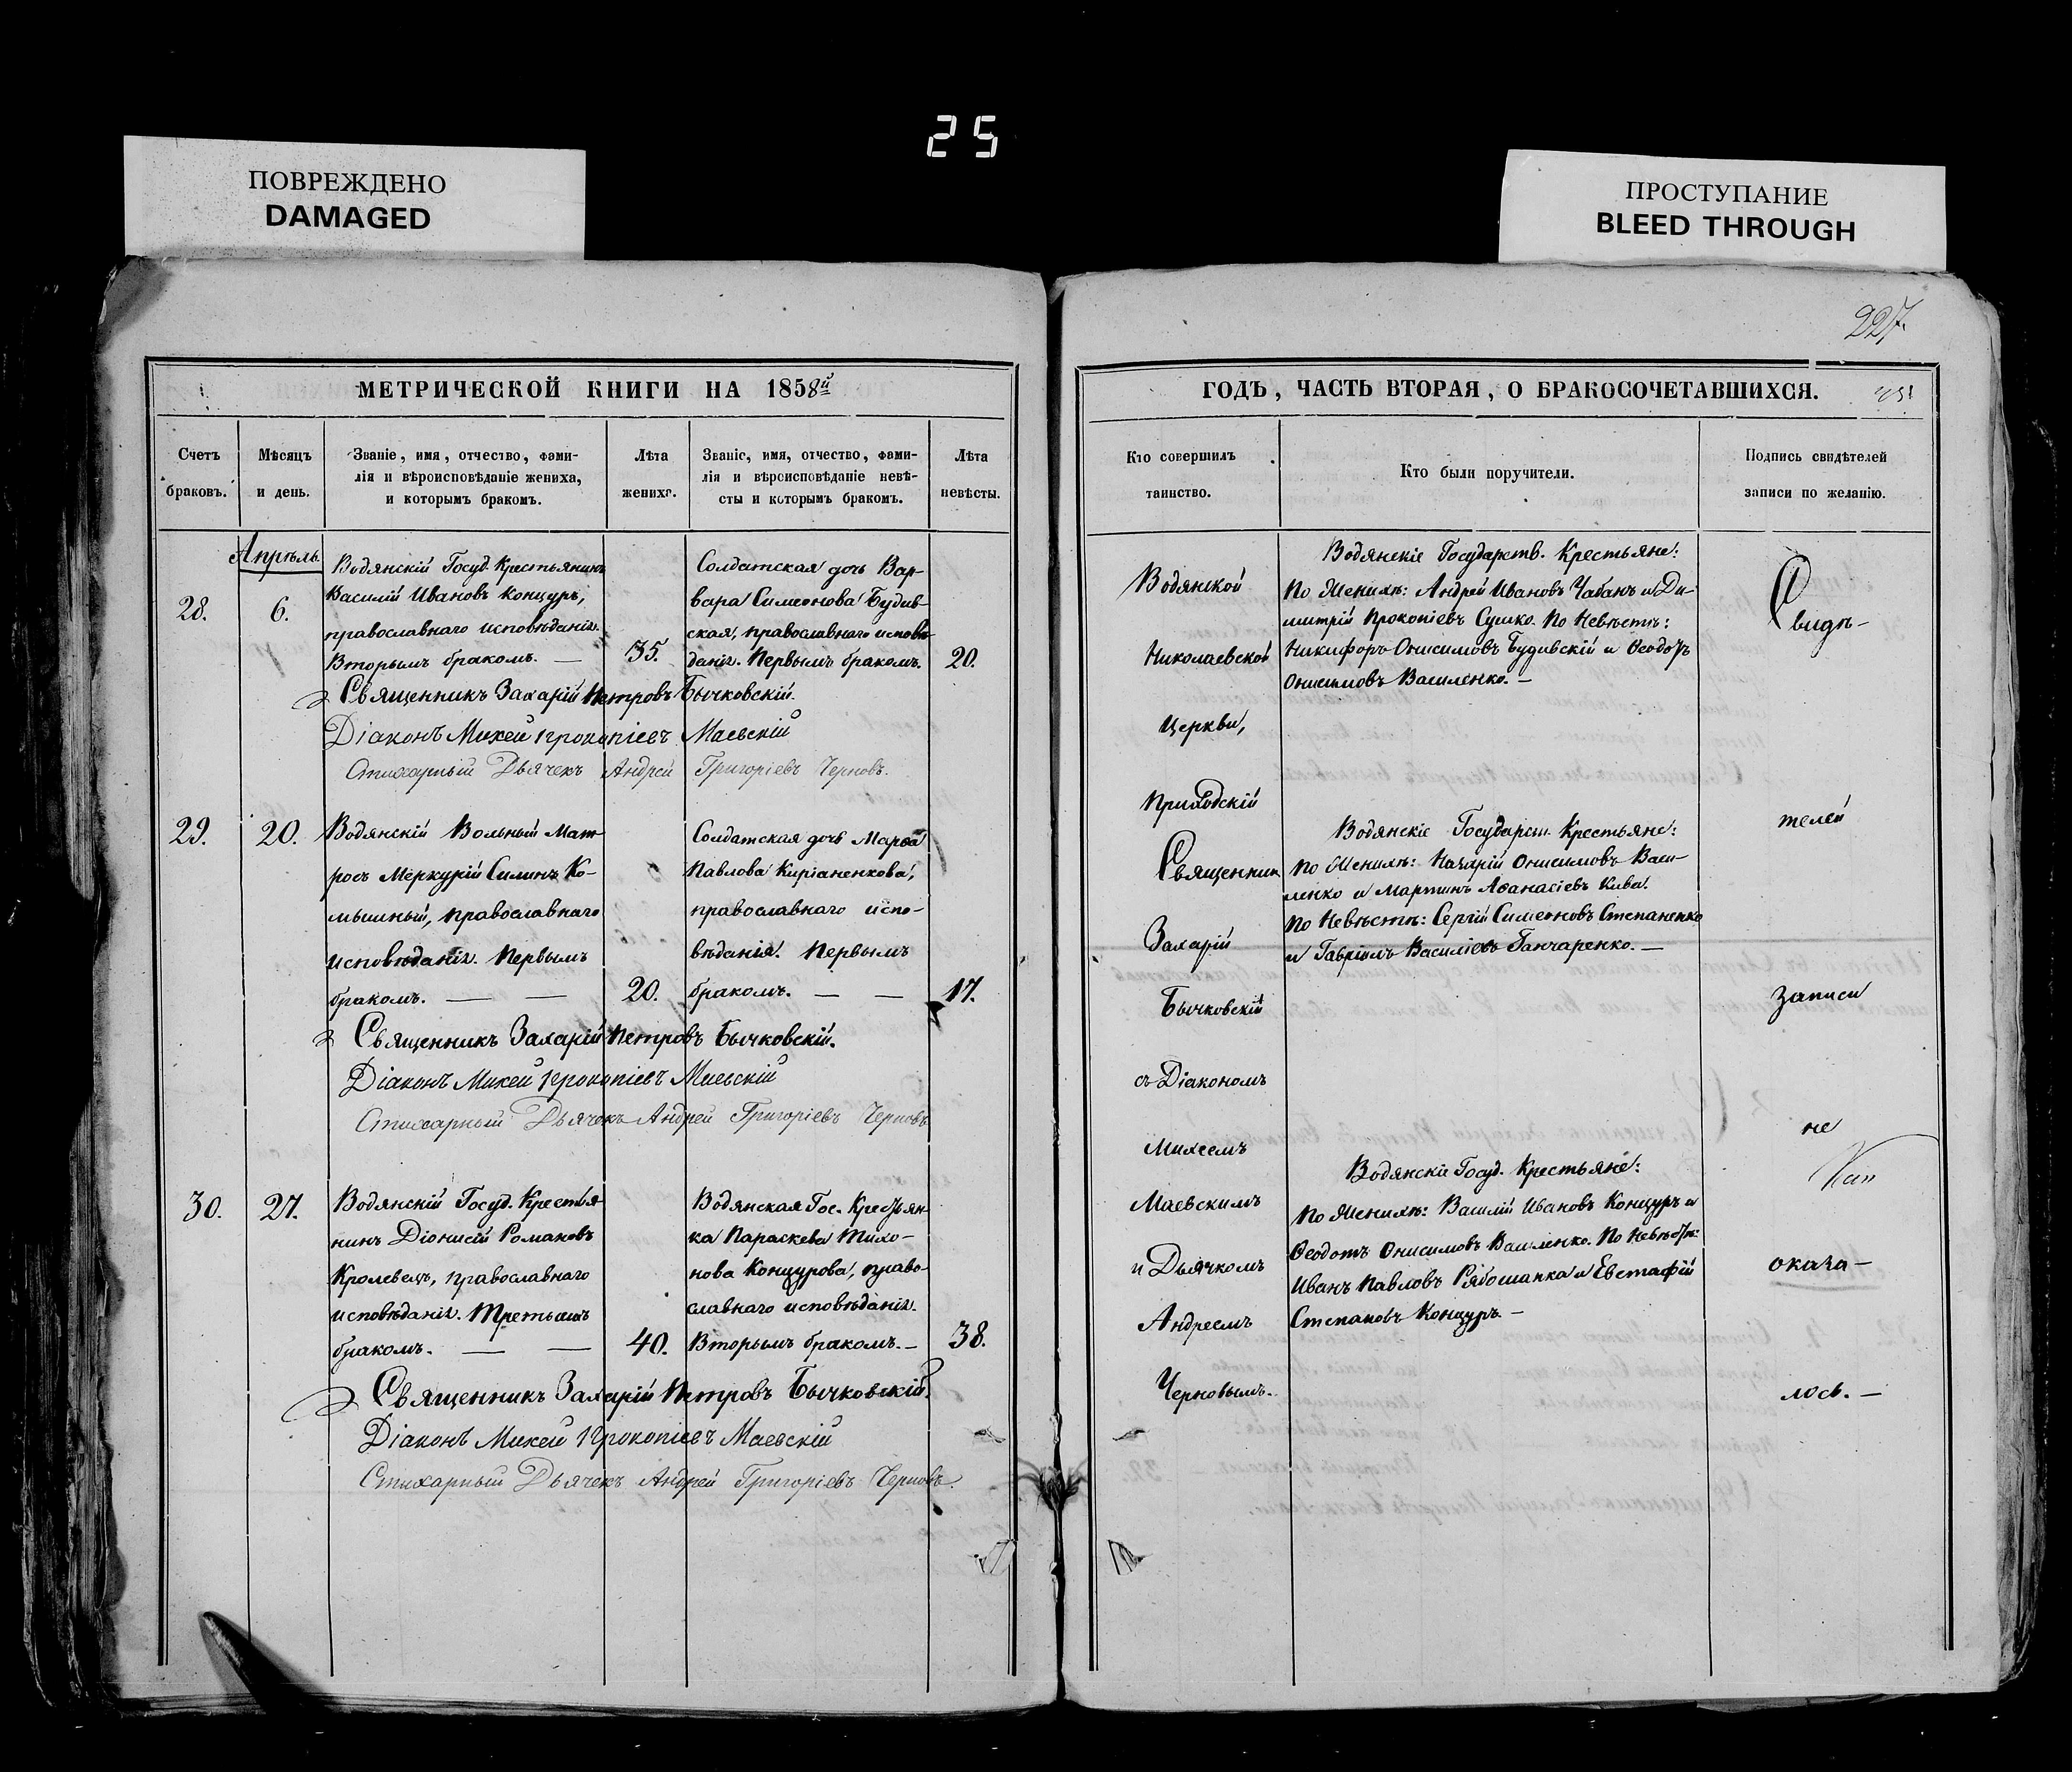 25
ПОВРЕЖДЕНО
DAMAGED
ПРОСТУПАНИЕ
BLEED THROUGH
227.
МЕТРИЧЕСКОЙ КНИГИ НА 1858й
Счетъ
браковъ.
Мѣсяцъ
и день.
Званіе, имя, отчество, фами-
лія и вѣроисповѣданіе жениха,
и которымъ бракомъ.
Лѣта
жениха.
Званіе, имя, отчество, фами-
лія и вѣроисповѣданіе невѣ-
сты и которымъ бракомъ.
Лѣта
невѣсты.
Апрѣль.
28.
6.
Водянскій Госуд. Крестьянинъ
Василій Ивановъ Концуръ,
православнаго исповѣданія.
Вторымъ бракомъ. —
35.
Солдатская дочь Вар-
вара Симеонова Будив-
ская, православнаго исповѣ-
данія. Первымъ бракомъ.
20.
Священникъ Захарій Петровъ Бычковскій.
Діаконъ Михей Прокопіевъ Маевскій
Стихарный Дьячекъ Андрей Григоріевъ Черновъ.
29.
20.
Водянскій Вольный Мат-
росъ Меркурій Силинъ Ко-
мышный, православнаго
исповѣданія. Первымъ
бракомъ. — —
20.
Солдатская дочь Марѳа
Павлова Киріаненкова,
православнаго испо-
вѣданія. Первымъ
бракомъ. — —
17.
Священникъ Захарій Петровъ Бычковскій.
Діаконъ Михей Прокопіевъ Маевскій
Стихарный Дьячекъ Андрей Григоріевъ Черновъ
30.
27.
Водянскій Госуд. Крестья-
нинъ Діонисій Романовъ
Кролевецъ, православнаго
исповѣданія. Третьимъ
бракомъ. — —
40.
Водянская Гос. Крестьян-
ка Параскева Тихо-
нова Концурова, право-
славнаго исповѣданія.
Вторымъ бракомъ. —
38.
Священникъ Захарій Петровъ Бычковскій.
Діаконъ Михей Прокопіевъ Маевскій
Стихарный Дьячекъ Андрей Григоріевъ Черновъ.
ГОДЪ, ЧАСТЬ ВТОРАЯ, О БРАКОСОЧЕТАВШИХСЯ.
Кто совершилъ
таинство.
Кто были поручители.
Подпись свидѣтелей
записи по желанію.
Водянской
Николаевской
Церкви,
Приходскій
Священникъ
Захарій
Бычковскій
съ Діакономъ
Михеемъ
Маевскимъ
и Дьячкомъ
Андреемъ
Черновымъ.
Водянскіе Государств. Крестьяне:
По Женихѣ: Андрей Ивановъ Чабанъ и Ди-
митрій Прокопіевъ Сушко. По Невѣстѣ:
Никифоръ Онисимовъ Будивскій и Ѳеодотъ
Онисимовъ Василенко. —
Водянскіе Государст. Крестьяне:
По Женихѣ: Назарій Онисимовъ Васи-
ленко и Мартинъ Аѳанасіевъ Кива.
По Невѣстѣ: Сергій Симеоновъ Степаненко
и Гавріилъ Василіевъ Ганчаренко. —
Водянскіе Госуд. Крестьяне:
По Женихѣ: Василій Ивановъ Концуръ и
Ѳеодотъ Онисимовъ Василенко. По Невѣстѣ:
Иванъ Павловъ Рябошапка и Евстафій
Степановъ Концуръ. —
Свидѣ-
телей
записи
не
оказа-
лось. —